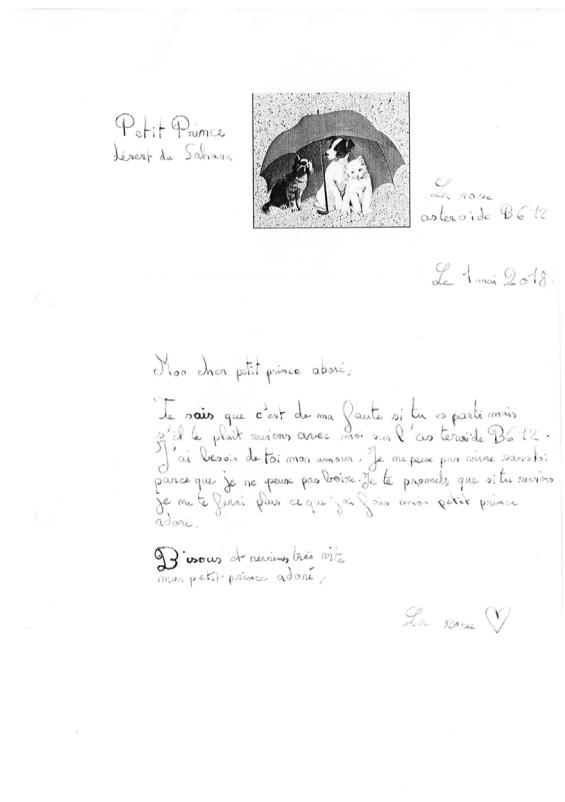 Petit Prince
désert du Sahara
La rose
asteroïde B612
Le 1 mai 2018.
Mon cher petit prince adoré,
Je sais que c'est de ma faute si tu es parti mais
s'il te plait reviens avec moi sur l'asteroïde B612.
J'ai besoin de toi mon amour. Je ne peux pas vivre sans toi
parce que je ne peux pas boire. Je te promets que si tu reviens
je ne te ferai plus ce que j'ai fais mon petit prince
adoré.
Bisous et reviens très vite
mon petit prince adoré,
La rose